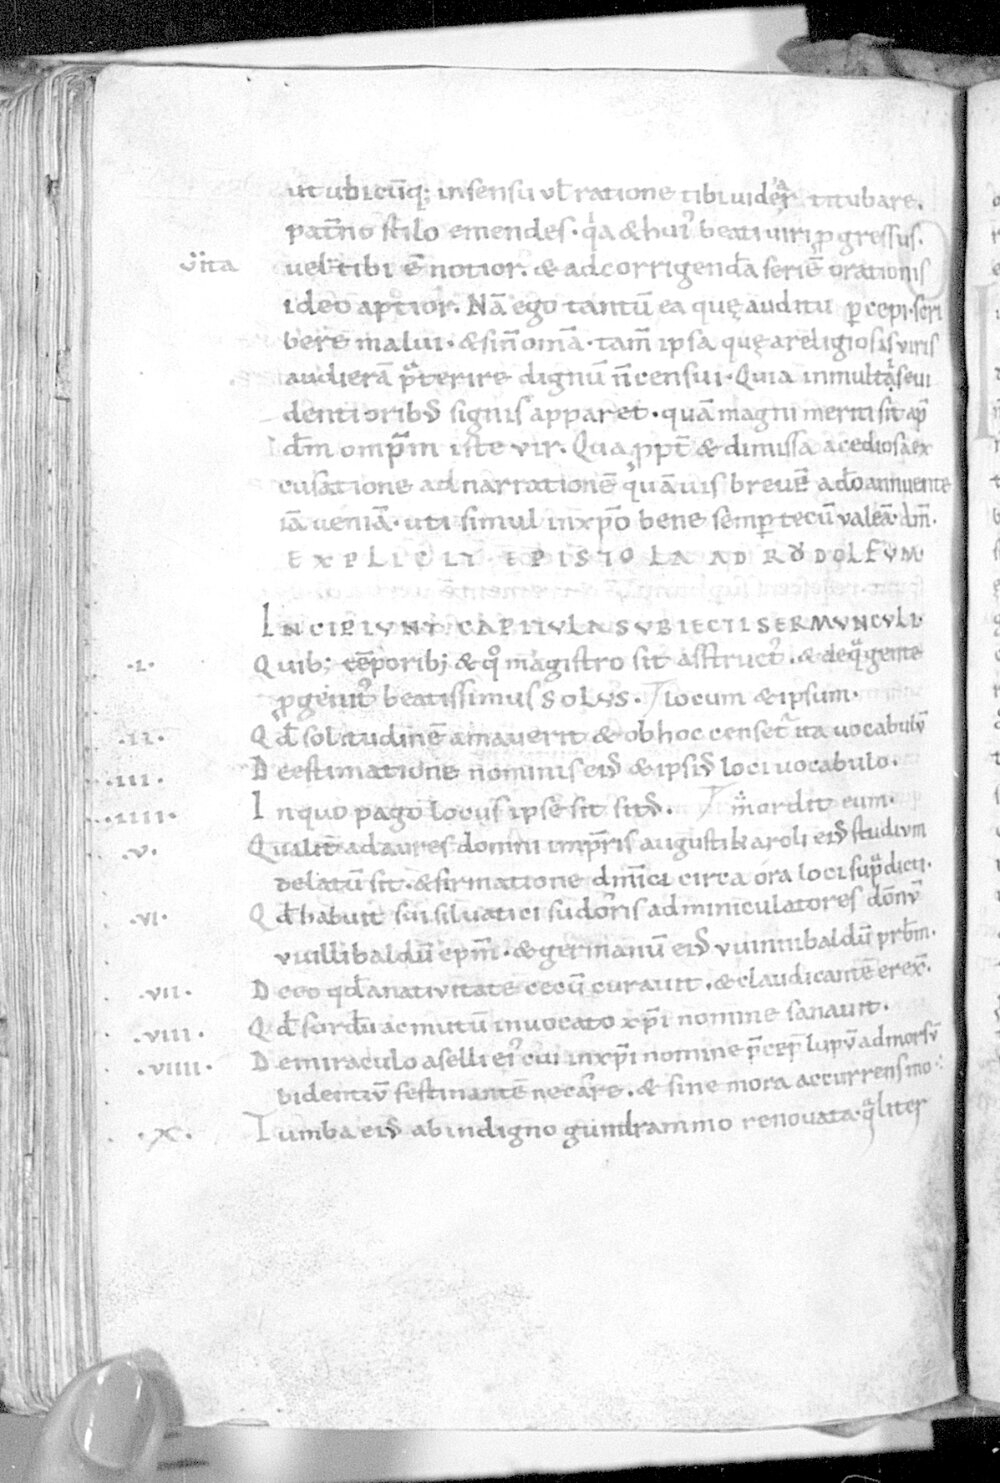 ut ubicūq; in sensu ul̄ ratione tibi uidet᷑ titubare.
pat̄no stilo emendes. qͥa & hui᷒ beati uiri ꝓgressus.
uita uel tibi ē notior. & ad corrigendā seriē orationis
ideo aptior. Nā ego tantū ea quę auditu ꝑcepi. scri
bere malui. & si n̄ om̄a. tam̄ ipsa quę a religiosis uiris
audierā p̄terire dignū n̄ censui. Quia in multis eui
dentiorib; signis apparet. quā magni meriti sit ap̄
dm̄ omp̄m iste vir. Qua ꝓpt̄ & dimissa acediosa ex
cusatione ad narrationē quāuis breuē ad̄o annuente
iā ueniā. uti simul in xp̄o bene semꝑ tecū ualeā. am̄.
EXPLICIT EPISTOLA AD RŮDOLFVM
INCIPIVNT CAPITVLA SVBIECTI SERMVNCVLI.
.I. Quib; tēporib; & qͦ magistro sit asstruct᷒. & de qͣ gente
ꝓgenit᷒ beatissimus SOLVS. locum & ipsum.
.II. Qd̄ solitudinē amauerit & ob hoc censet᷑ ita uocabulū
.III. De estimatione nominis ei᷒ & ipsi᷒ loci uocabulo.
.IIII. In quo pago locus ipse sit sit᷒. mordit eum.
.V. Qualit̄ ad aures domni imp̄ris augusti karoli ei᷒ studium
delatū sit. & firmatione dm̄ici circa ora loci sup̄dicti.
.VI. Qd̄ habuit sui siluatici sudoris adminiculatores donnū
vuillibaldū epm̄. & germanū ei᷒ vuinnibaldū prb̄m.
.VII. De eo qd̄ a natiuitate cecū curauit. & claudicantē erex̄.
.VIII. Qd̄ surdū ac mutū inuocato xp̄i nomine sanauit.
.VIIII. De miraculo aselli ei᷒ cui in xp̄i nomine p̄cep̄ lupū ad morsū
bidentiū festinantē necare. & sine mora accurrens mo
.X. Tumba ei᷒ ab indigno gundrammo renouata. qͣliter